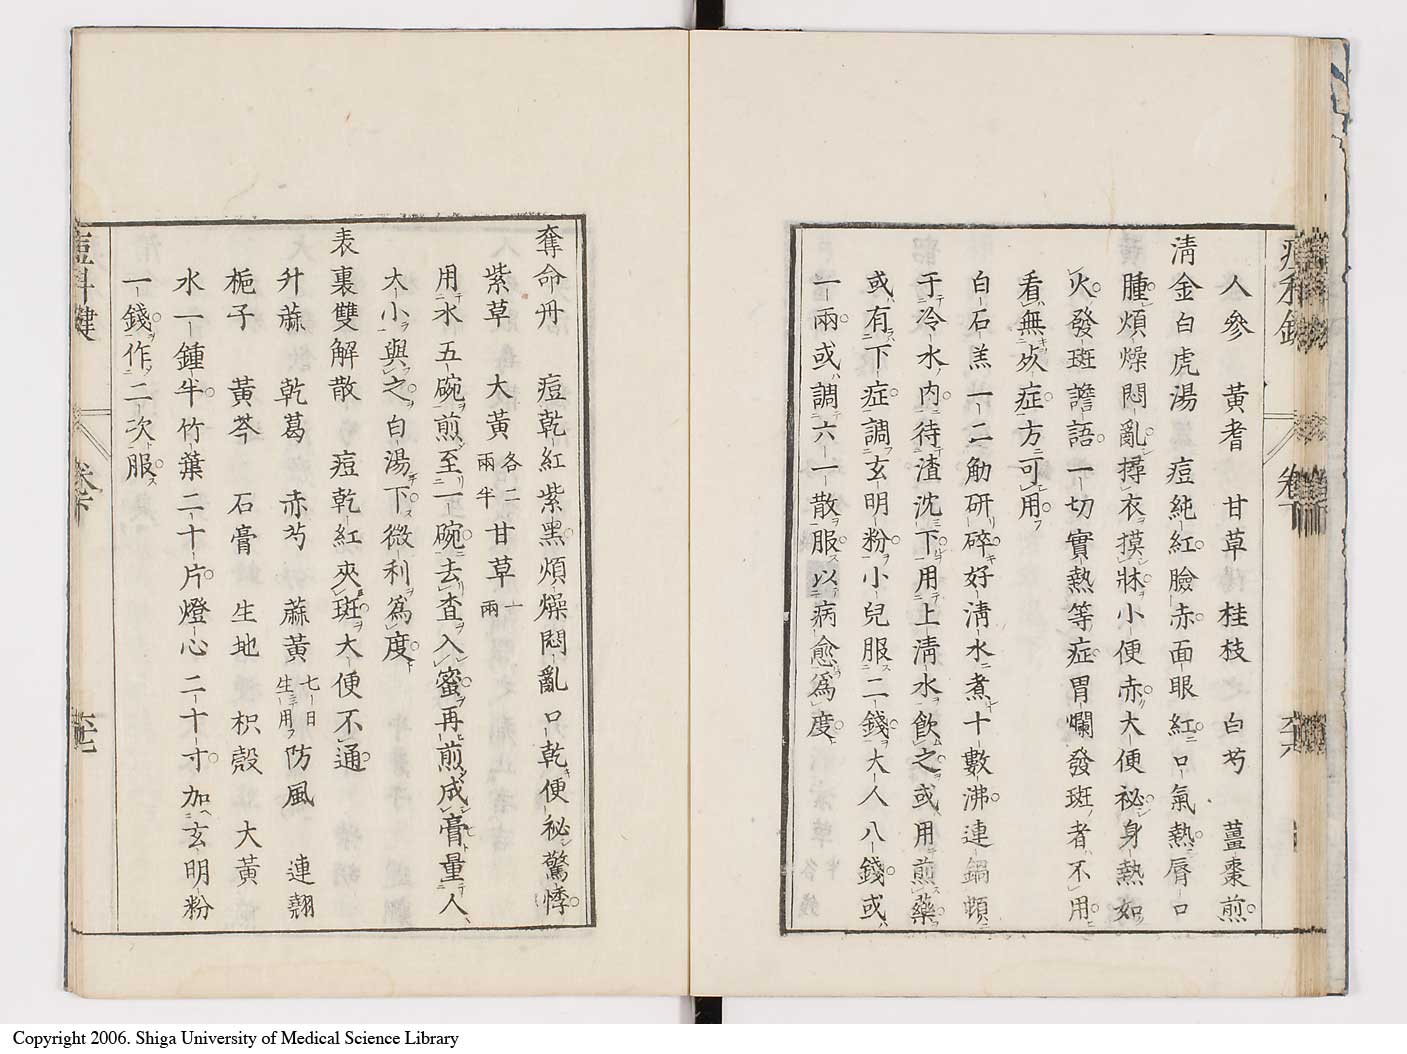 人參 黃耆 甘草桂枝 白芍 薑棗煎
清金白虎湯 痘純紅臉赤面眼紅口氣熱唇口
腫煩燥悶亂撏衣摸牀小便赤大便祕身熱如
火發斑譫語一切實熱等症胃爛發斑者不用
看無此症方可用
白石羔一二觔研碎好清水煮十數沸連鍋頓
于冷水內待渣沈下用上清水飲之或用煎藥
或有下症調玄明粉小兒服二錢大人八錢或
一兩或調六一散服以病愈爲度
奪命丹 痘乾紅紫黑煩燥悶亂口乾便祕驚悸
紫草 大黃各二兩半甘草一兩
用水五碗煎至一碗去査入蜜再煎成膏量人
大小與之白湯下微利爲度
表裏雙解散 痘乾紅夾斑大便不通
升蔴 乾葛 赤芍 蔴黃七日生用防風 連翹
梔子 黃芩 石膏 生地 枳殼 大黃
水一鍾半竹葉二十片燈心二十寸加玄明粉
一錢作二次服
痘科鍵 卷下 六七
Copyright 2006. Shiga University of Medical Science Library